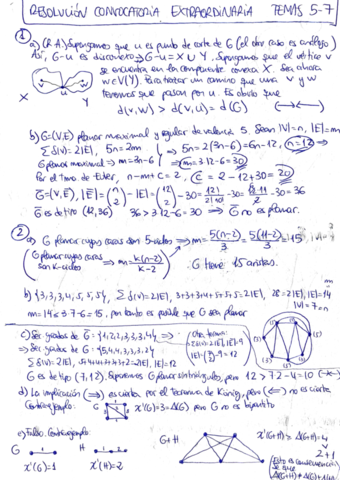 RESOLUCIÓN CONVOCATORIA EXTRAORDINARIA TEMAS 5-7
① a) (R.A.) Supongamos que u es punto de corte de G (el otro caso es análogo)
Así, G-u es disconexo ⇒ G-u = X ∪ Y. Supongamos que el vértice v
se encuentra en la componente conexa X. Sea ahora
w ∈ V(Y). Para trazar un camino que una v y w
tenemos que pasar por u. Es obvio que
d(v,w) > d(v,u) = d(G) (→←)
X Y
b) G=(V,E) planar maximal y regular de valencia 5. Sean |V|=n, |E|=m
∑δ(v)=2|E|, 5n=2m
G planar maximal ⇒ m=3n-6
5n=2(3n-6)=6n-12, n=12 ⇒
⇒ m=3·12-6=30
Por el Tma de Euler, n-m+c=2, c=2-12+30=20
G̅=(V,E̅), |E̅|=(n 2)-|E|=(12 2)-30=12!/2!10!-30=12·11/2-30=36
G̅ es de tipo (12,36) 36>3·12-6=30 ⇒ G̅ no es planar.
② a) G planar cuyas caras son 5-ciclos ⇒ m=5(n-2)/3=5(11-2)/3=15
(G planar cuyas caras son k-ciclos ⇒ m=k(n-2)/k-2)
G tiene 15 aristas.
b) {3,3,3,4,5,5,5}, ∑δ(v)=2|E|, 3+3+3+4+5+5+5=2|E|, 28=2|E|, |E|=14
|V|=7
m=14≤3·7-6=15, por tanto es posible que G sea planar
c) Ser grados de G̅={1,1,2,3,3,3,4} ⇒
⇒ Ser grados de G={5,4,4,3,3,3,2}
∑δ(v)=2|E|, |E|=12
G es de tipo (7,12). Supongamos G planar sin triángulos, pero 12>7·2-4=10 (→←)
d) La implicación (⇒) es cierta por el Teorema de König, pero (⇐) no es cierta
Contraejemplo: G χ'(G)=3=Δ(G) pero G no es bipartito
e) Falso. Contraejemplo:
G H G+H
χ'(G)=1 χ'(H)=2
2+1
Esto es consecuencia
de que